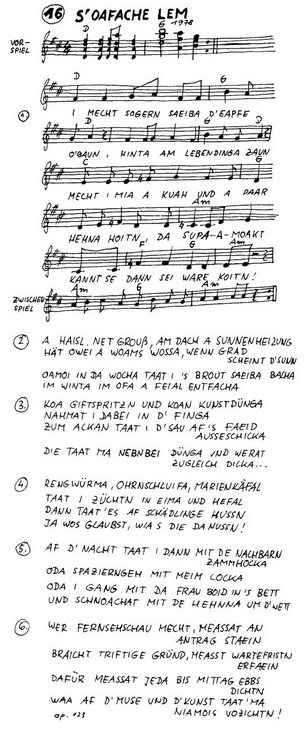 16 S'OAFACHE LEM
D G 1978
VOR-
SPIEL
D G
1.
I MECHT SOGERN SAEIBA D'EAPFE
D G D
O'BAUN, HINTA AM LEBENDINGA ZAUN
C G
MECHT I MIA A KUAH UND A PAAR
Am
HEHNA HOITN, DA SUPA-A-MOAKT
F G Am
KANNT SE DANN SEI WARE KOITN!
Am G Am
ZWISCHEN
SPIEL
2. A HAISL, NET GROUß, AM DACH A SUNNENHEIZUNG
HÄT OWEI A WOAMS WOSSA, WENN GRAD
SCHEINT D'SUNN
OAMOI IN DA WOCHA TAAT I 'S BROUT SAEIBA BACHA
IM WINTA IM OFA A FEIAL ENTFACHA
3. KOA GIFTSPRITZN UND KOAN KUNSTDÜNGA
NAHMAT I DABEI IN D' FINGA
ZUM ACKAN TAAT I D'SAU AF'S FAEID
AUSSESCHICKA
DIE TAAT MA NEBNBEI DÜNGA UND WERAT
ZUGLEICH DICKA...
4. RENGWÜRMA, OHRNSCHLUIFA, MARIENKÄFAL
TAAT I ZÜCHTN IN EIMA UND HEFAL
DANN TAAT'ES AF SCHÄDLINGE HUSSN
JA WOS GLAUBST, WIA S DIE DANUSSN!
5. AF D' NACHT TAAT I DANN MIT DE NACHBARN
ZAMMHOCKA
ODA SPAZIERNGEH MIT MEIM LOCKA
ODA I GANG MIT DA FRAU BOID IN'S BETT
UND SCHNOACHAT MIT DE HEHNNA UM D'WETT
6. WER FERNSEHSCHAU MECHT, MEASSAT AN
ANTRAG STAEIN
BRAICHT TRIFTIGE GRÜND, MEASST WARTEFRISTN
ERFAEIN
DAFÜR MEASSAT JEDA BIS MITTAG EBBS
DICHTN
WAA AF D'MUSE UND D'KUNST TAAT'MA
NIAMOIS VOZICHTN!
op. 123